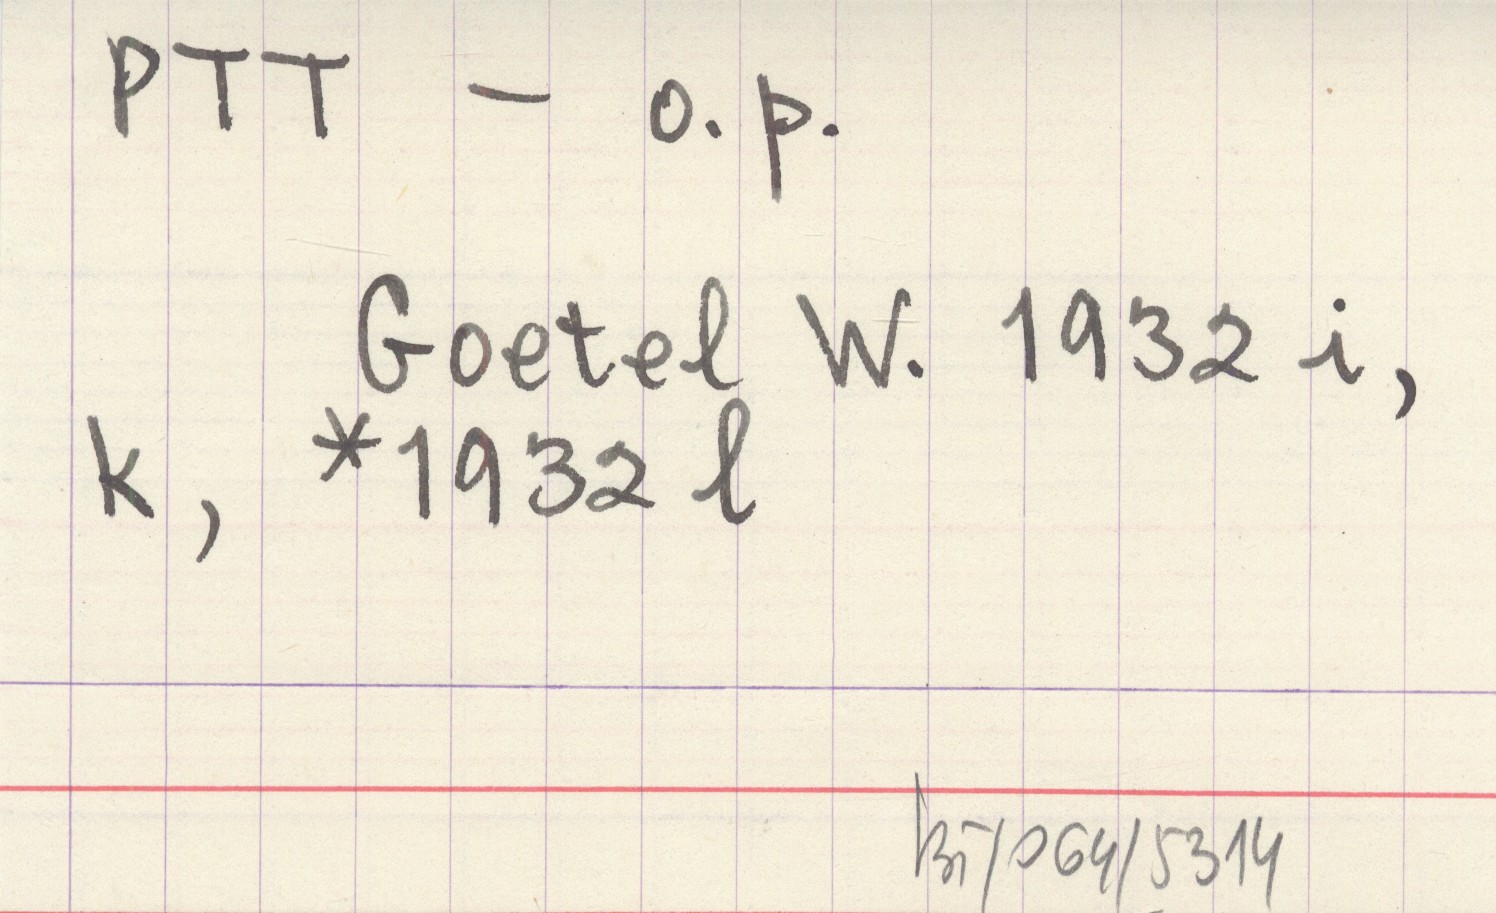 PTT - o.p.
Goetel W. 1932 i,
k, *1932 l
BT/064/5314